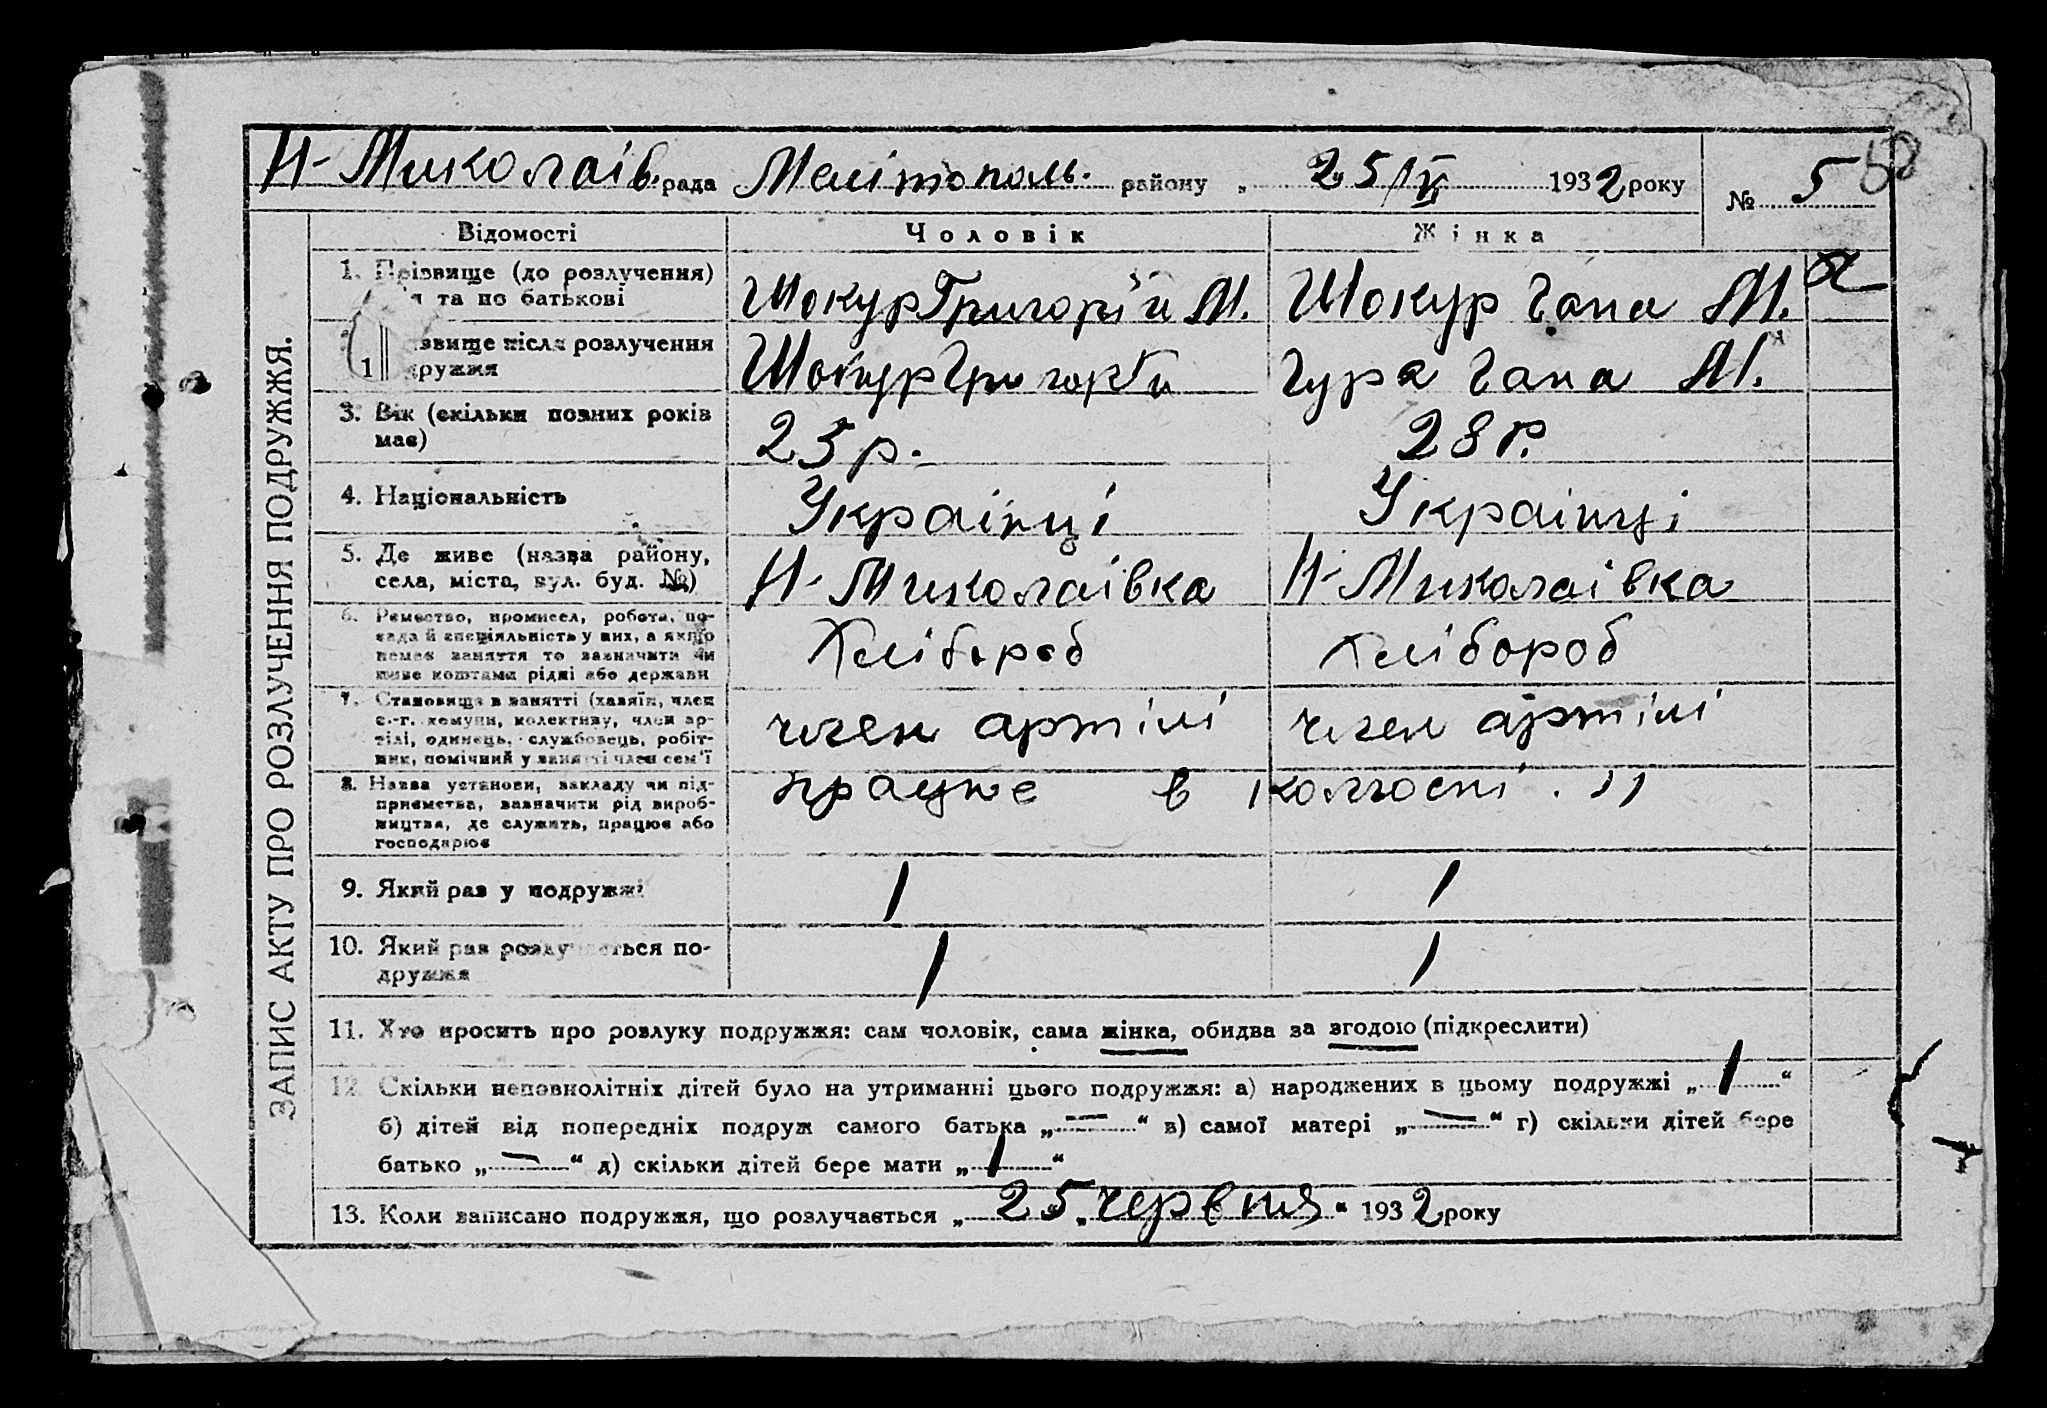 Н-Миколаів. рада Мелітополь. району „ 25/VI 1932 року
№ 5
58
Відомості Чоловік Жінка
ЗАПИС АКТУ ПРО РОЗЛУЧЕННЯ ПОДРУЖЖЯ.
1. Прізвище (до розлучення)
та по батькові
Шокур Григорій М. Шокур Гапа М.
звище після розлучення
дружжя
1
Шокур Григорій Гура Гапа М.
3. Вік (скільки повних років
має)
25 р. 28 р.
4. Національність Українці Українці
5. Де живе (назва району,
села, міста, вул. буд. №)
Н-Миколаівка Н-Миколаівка
6. Ремество, промисел, робота, по-
сада й спеціяльність у них, а якщо
немає заняття то зазначити чи
живе коштами рідні або держави
Хлібороб Хлібороб
7. Становище в занятті (хазяїн, член
с.-г. комуни, колективу, член ар-
тілі, одинець, службовець, робіт-
ник, помічний у занятті член сем'ї
член артілі член артілі
8. Назва установи, закладу чи під-
приємства, зазначити рід вироб-
ництва, де служить, працює або
господарює
працює в колгоспі. 11
9. Який раз у подружжі 1 1
10. Який раз розлучається по-
дружжя
1 1
11. Хто просить про розлуку подружжя: сам чоловік, сама жінка, обидва за згодою (підкреслити)
12. Скільки неповнолітніх дітей було на утриманні цього подружжя: а) народжених в цьому подружжі „ 1 “
б) дітей від попередніх подруж самого батька „ — “ в) самої матері „ — “ г) скільки дітей бере
батько „ — “ д) скільки дітей бере мати „ 1 “
13. Коли записано подружжя, що розлучається „ 25 „ червня “ 1932 року